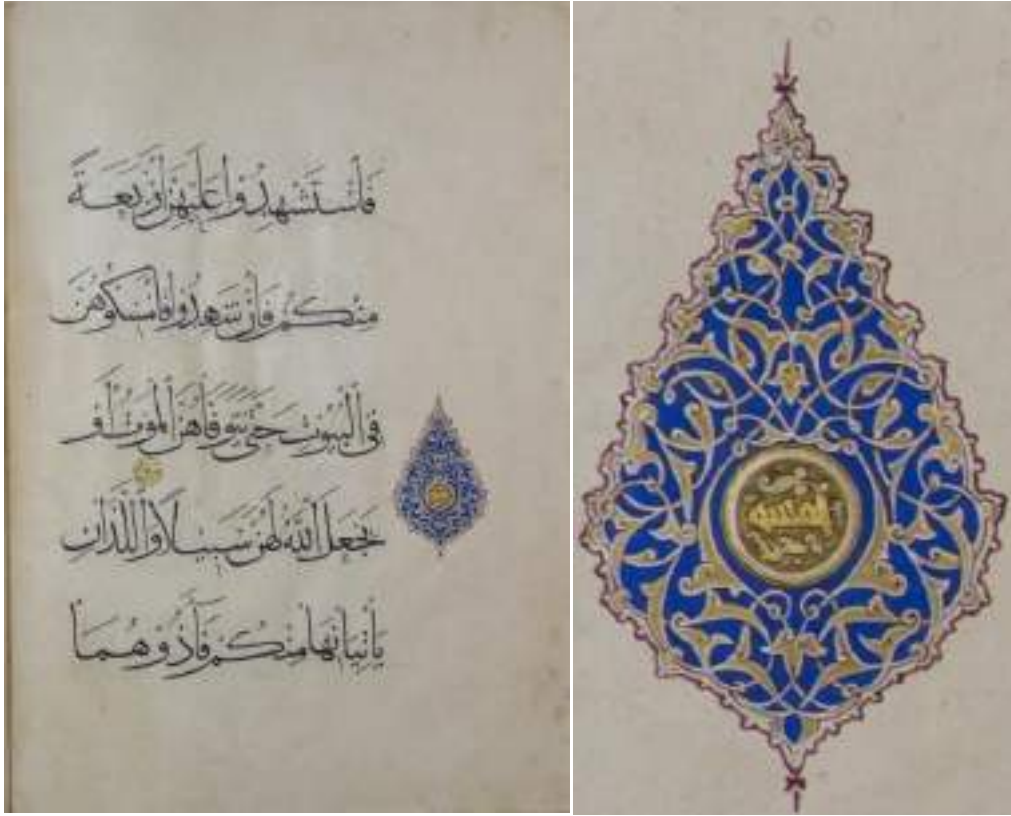 فَاسْتَشْهِدُوا عَلَيْهِنَّ أَرْبَعَةً
مِنْكُمْ فَإِنْ شَهِدُوا فَأَمْسِكُوهُنَّ
فِي الْبُيُوتِ حَتَّى يَتَوَفَّاهُنَّ الْمَوْتُ أَوْ
يَجْعَلَ اللَّهُ لَهُنَّ سَبِيلًا وَاللَّذَانِ
يَأْتِيَانِهَا مِنْكُمْ فَآذُوهُمَا